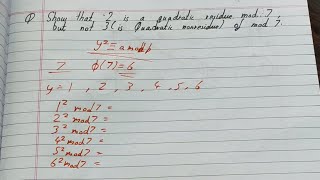 Q. Show that 2 is a quadratic residue mod 7
but not 3 is Quadratic nonresidue of mod 7.
y² ≡ a mod p
7 φ(7) = 6
y = 1, 2, 3, 4, 5, 6
1² mod 7 =
2² mod 7 =
3² mod 7 =
4² mod 7 =
5² mod 7 =
6² mod 7 =